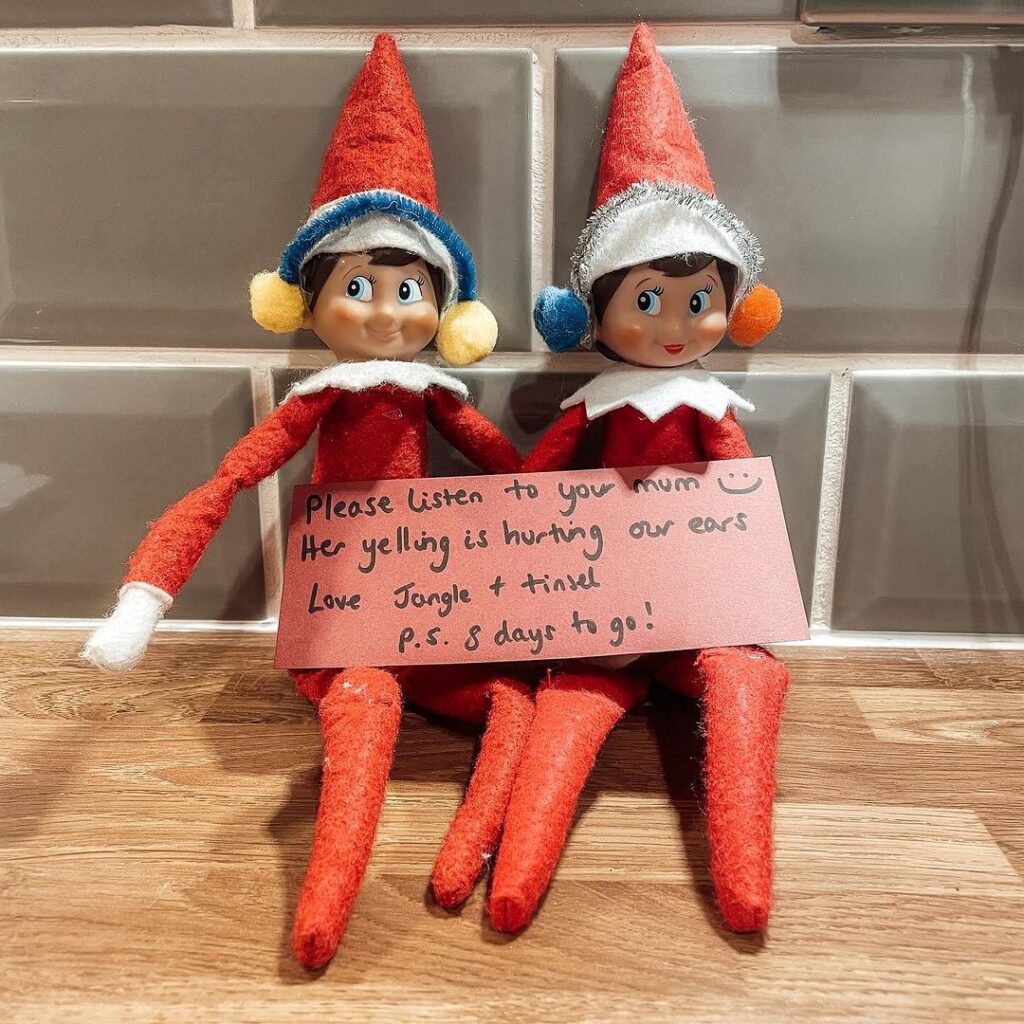 Please listen to your mum :)
Her yelling is hurting our ears
Love Jangle + tinsel
p.s. 8 days to go!